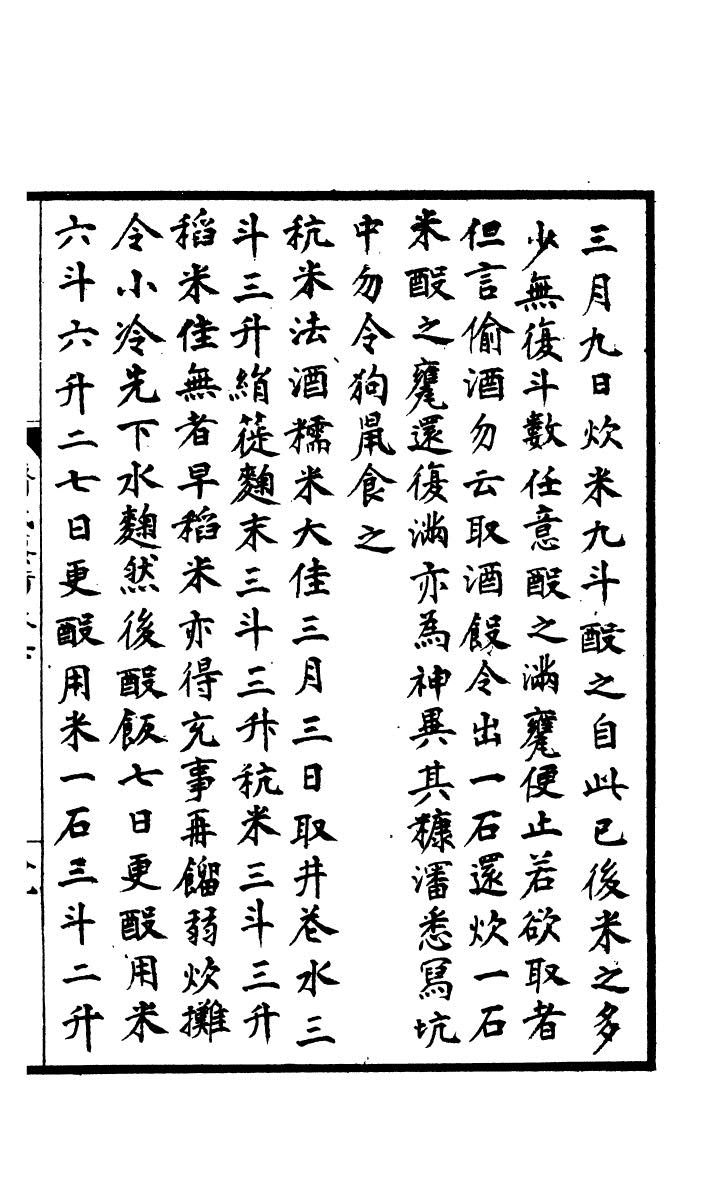 三月九日炊米九斗酘之自此已後米之多
少無復斗數任意酘之滿甕便止若欲取者
但言偷酒勿云取酒假令出一石還炊一石
米酘之甕還復滿亦為神異其糠瀋悉冩坑
中勿令狗鼠食之
秔米法酒糯米大佳三月三日取井花水三
斗三升絹簁麴末三斗三升秔米三斗三升
稻米佳無者早稻米亦得充事再餾弱炊攤
令小冷先下水麴然後酘飯七日更酘用米
六斗六升二七日更酘用米一石三斗二升